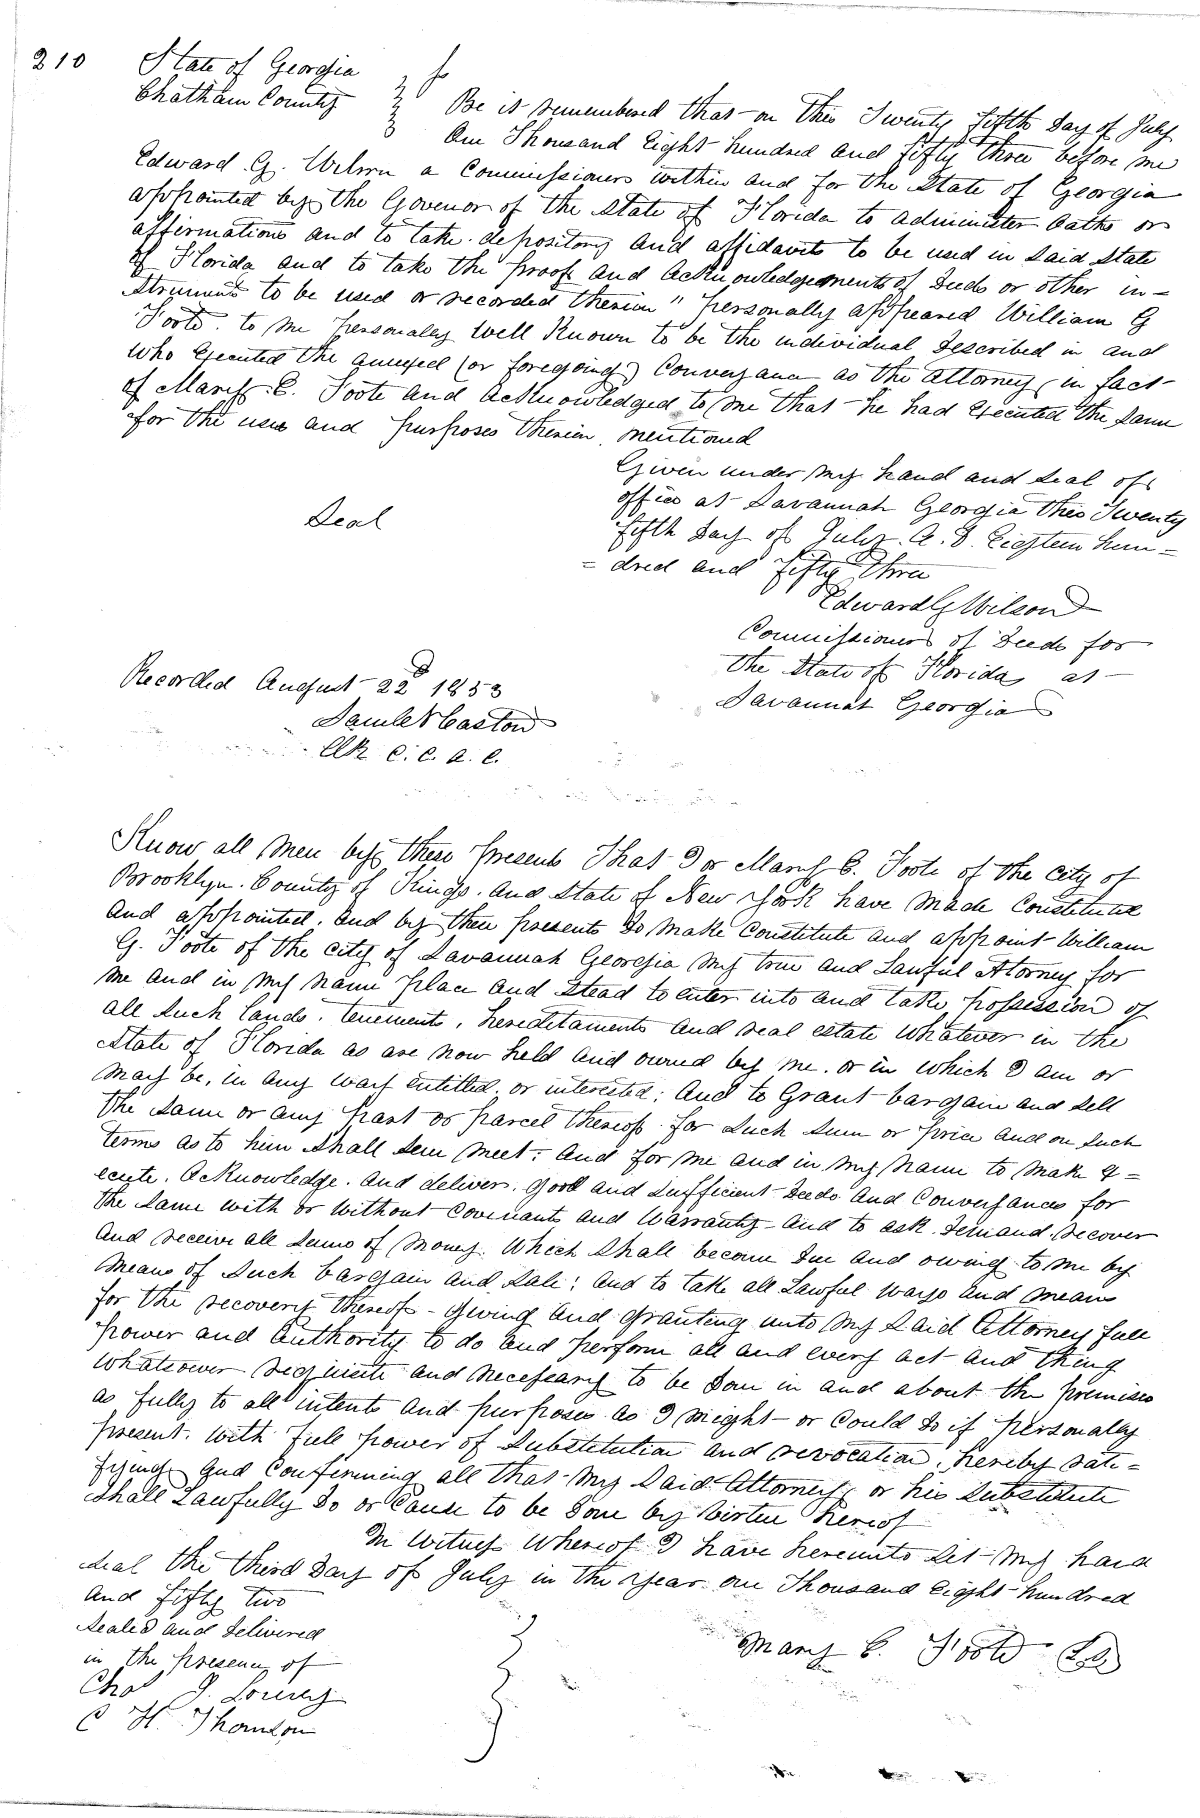 210
State of Georgia
Chatham County
Be it remembered that on this Twenty fifth Day of July
One Thousand Eight hundred and fifty three before me
Edward G. Wilson a Commissioner within and for the State of Georgia
appointed by the Govenor of the State of Florida to administer oaths or
affirmations and to take depository and affidavits to be used in Said State
of Florida and to take the proof and acknowledgements of Deeds or other in=
struments to be used or recorded therein " personally appeared William G
Foote to me personally well Known to be the individual Described in and
who Executed the annexed (or foregoing) Conveyance as the attorney in fact
of Mary E. Foote and acknowledged to me that he had Executed the Same
for the uses and purposes therein mentioned
Given under my hand and Seal of
office at Savannah Georgia this Twenty
fifth Day of July A. D. Eighteen hun=
=dred and fifty three
Seal
Edward G Wilson
Commissioner of Deeds for
the State of Florida at
Savannah Georgia
Recorded August 22d 1853
Clk C. C. A. C.
Know all Men by these presents That I Mary E. Foote of the City of
Brooklyn. County of Kings. and State of New York have made Constituted
and appointed. and by these presents Do make Constitute and appoint William
G. Foote of the City of Savannah Georgia my true and Lawful Attorney for
me and in my name place and Stead to enter into and take possession of
all such lands. tenements, hereditaments and real estate whatever in the
State of Florida as are now held and owned by me. or in which I am or
may be, in any way entitled. or interested; and to Grant bargain and Sell
the Same or any part or parcel thereof for Such Sum or price and on Such
terms as to him Shall Seem meet; and for me and in my name to make &=
ecute. acknowledge. and deliver. good and sufficient Deeds and Conveyances for
the Same with or without Covenants and Warranty and to ask. Demand. recover
and receive all Sums of money. which Shall become Due and owing to me by
means of Such bargain and Sale; and to take all Lawful ways and means
for the recovery thereof - giving and granting unto my Said Attorney full
power and authority to do and perform all and every act and thing
whatsoever requisite and necessary to be Done in and about the premises
as fully to all intents and purposes as I might or Could Do if personally
present. with full power of Substitution and revocation, hereby rati=
fying and Confirming all that my Said Attorney or his Substitute
Shall Lawfully Do or Cause to be Done by Virtue hereof
In Witness Whereof I have hereunto Set my hand
Seal the third Day of July in the year one Thousand Eight hundred
and fifty two
Sealed and Delivered
in the presence of
Mary E. Foote